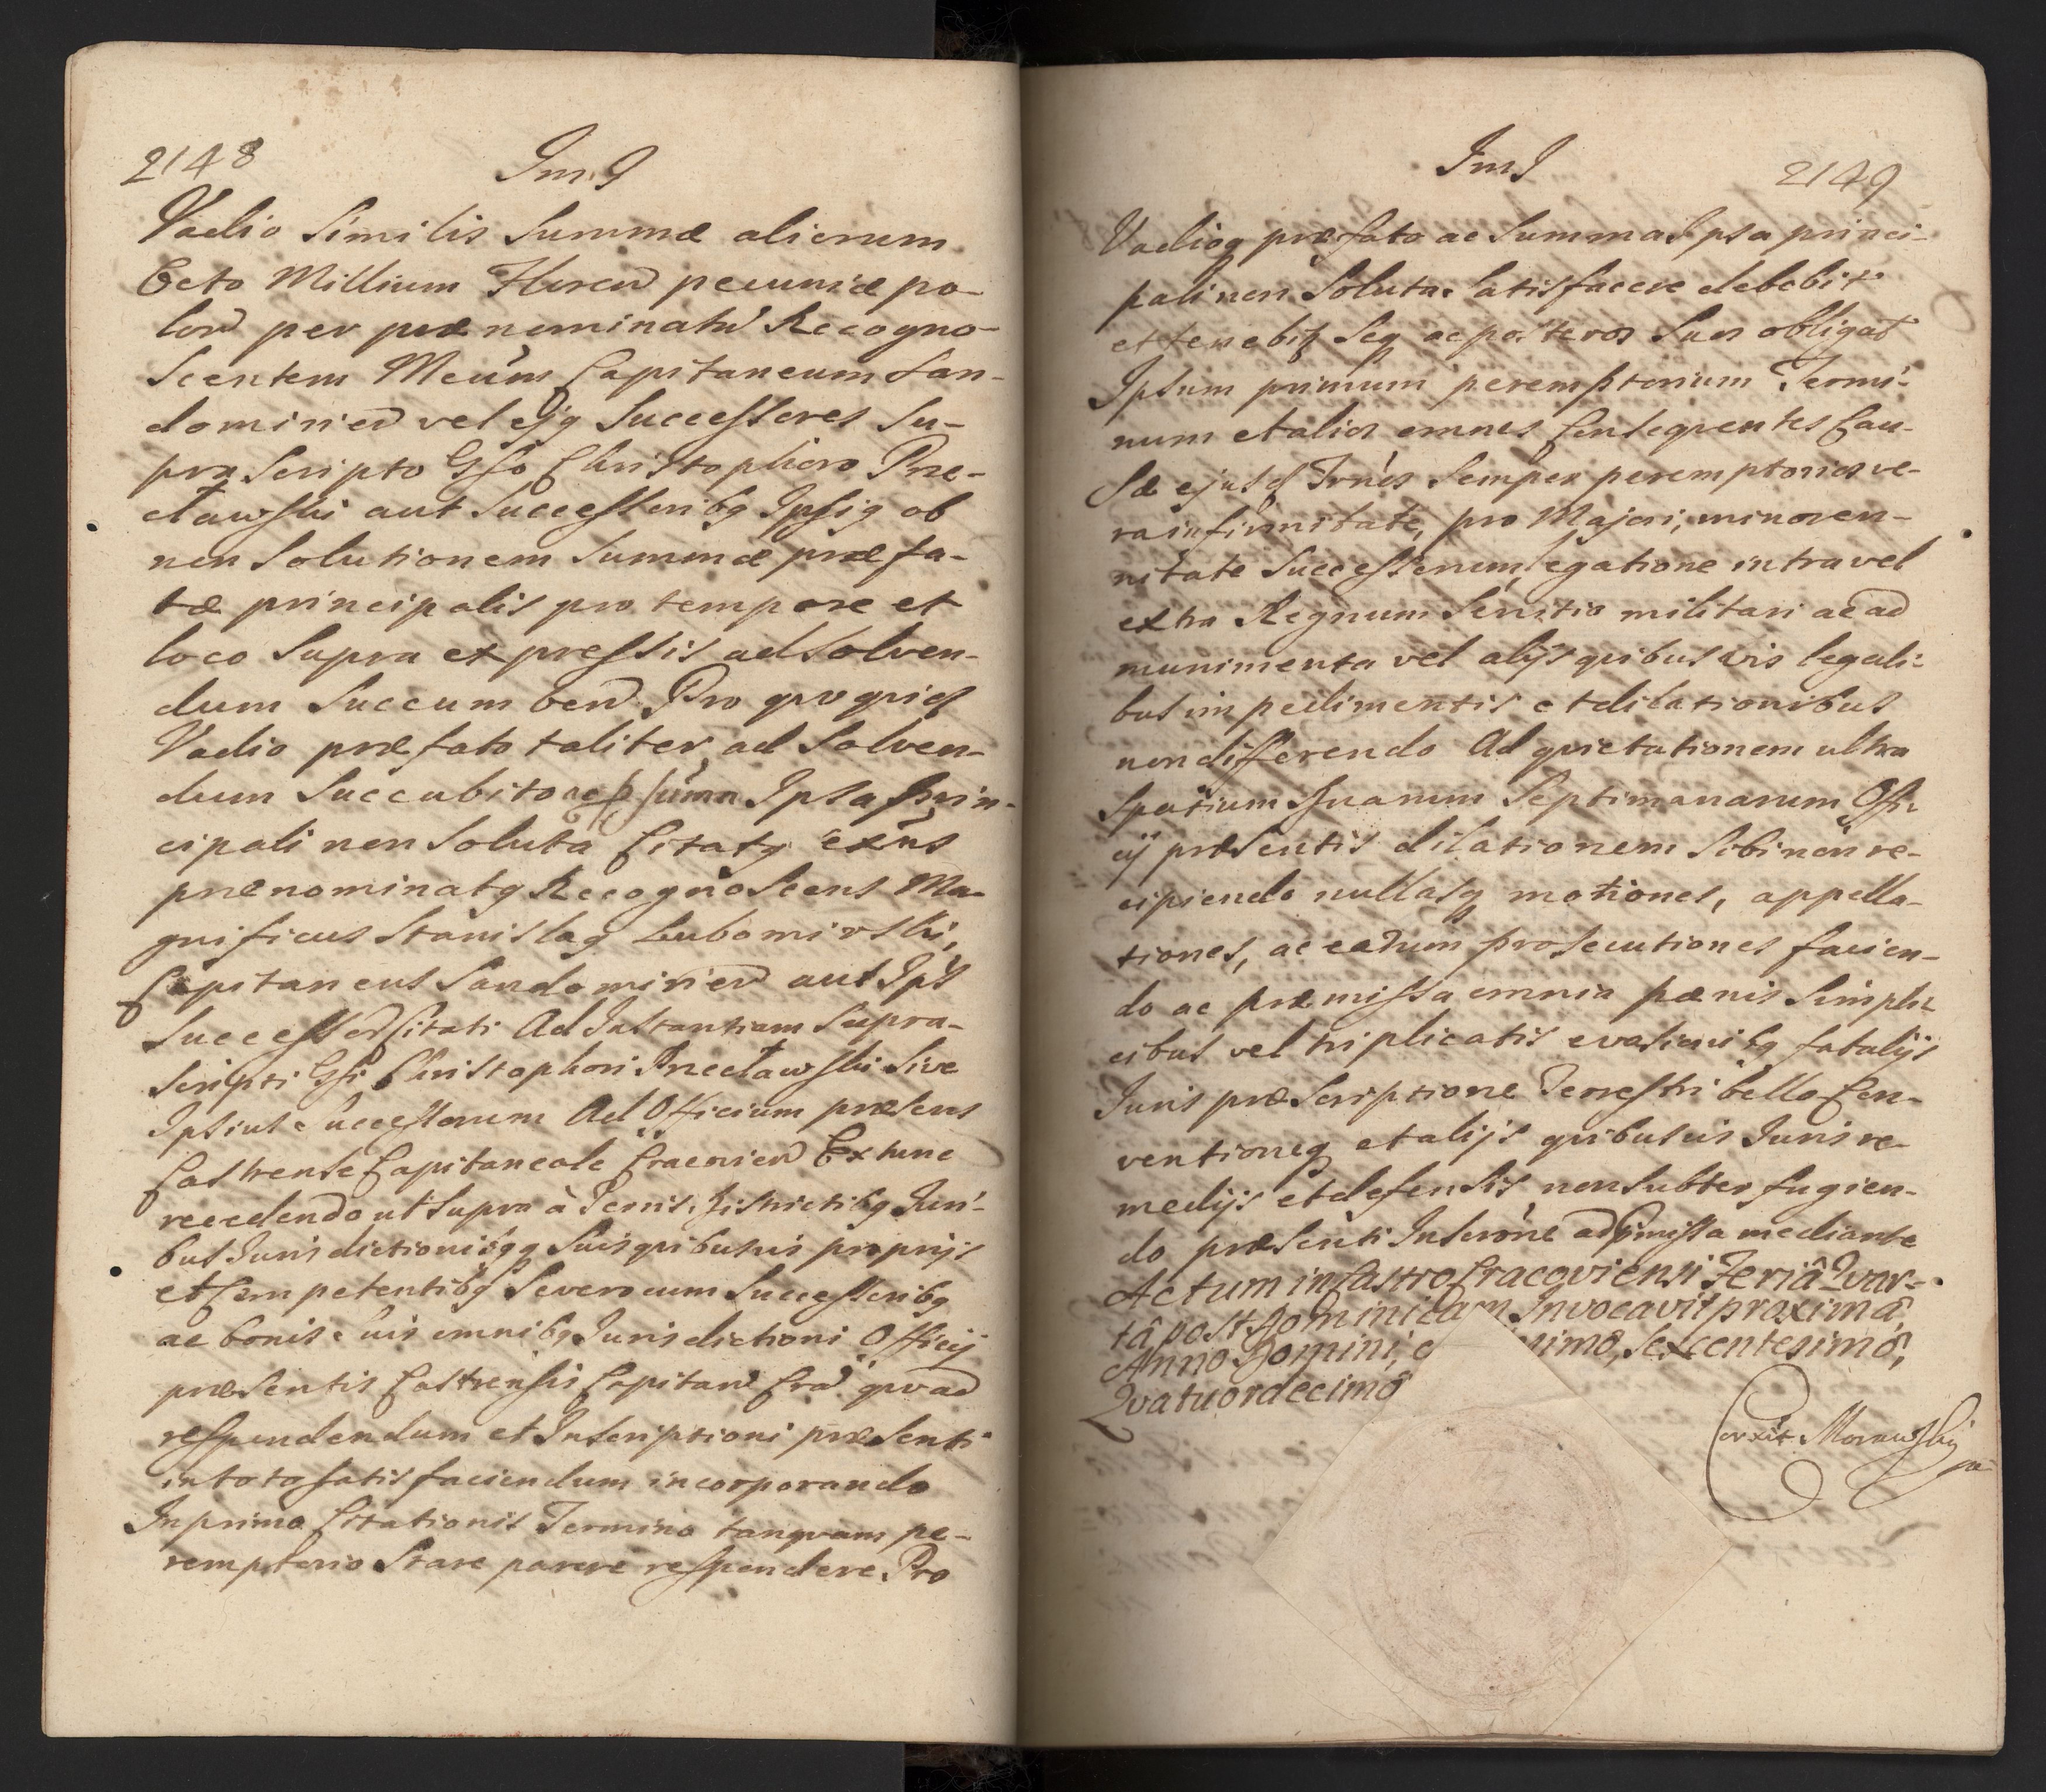 2148
Im.I
Vadio Similis Summæ alierum
Octo Millium Floren pecuniæ po-
lon per prænominatu Recogno-
Scentem Meum Capitaneum San-
domirien vel ejq Successores Su-
pra Scripto Gso Christophoro Prze-
cławski aut Successoribq Ipsiq ob
non Solutionem Summæ præfa-
tæ principalis pro tempore et
loco Supra expressis ad Solven-
dum Succumben Pro qvo qvid
Vadio præfato taliter ad Solven-
dum Succubito Ipsa prin-
cipali non Soluta Citatq
prænominatq Recognoscens Ma-
gnificus Stanislaq Lubomirski,
Capitaneus Sandomirien aut Ips
Successor Citati Ad Instantiam Supra-
Scripti Gsi Christophori Przecławski Sive
Ipsius Successorum Ad Officium præsens
Castrense Capitaneale Cracovien Extunc
recedendo ut Supra à Terris, Districtibq Juri-
bus Jurisdictionibqq Suis qvibusvis proprijs
et Competentibq Severo cum Successoribq
ac bonis Suis omnibq Jurisdictioni Officij
præsentis Castrensis Capitan Cra qvoad
respondendum et Inscriptioni præsenti
in totq satisfaciendum incorporando
In primo Citationis Termino tanqvam pe-
remptorio Stare parere respondere. Pro
Im I
2149
Vadioq præfato ac Summa Ipsa princi-
pali non Soluta Satisfacere debebit
et tenebit Seq ac posteros Suos obligat
Ipsum primum peremptorium Termi-
num et alios omnes Conseqventes Cau-
Sæ ejusd Trnos Semper peremptorios ve-
ra infirmitate, pro Majori, minoren-
nitate Successorum, legatione intra vel
extra Regnum Servitio militari ac ad
munimenta vel alijs qvibusvis legali-
bus impedimentis et dilationibus
non differendo Ad qvietationem ultra
Spatium Septimanarum Offi-
cij præsentis dilationem Sibi non re-
cipiendo nullasq motiones, appella-
tiones, ac earum prosecutiones facien-
do ac præmissa omnia pænis Simpli-
cibus vel triplicatis evasionibq fatalijs
Juris præscriptione Terrestri bello Con-
ventioneq et alijs qvibusvis Juris re-
medijs et defensis non Subterfugien-
do præsenti Inscrone admissa mediante
Actum in Castro Cracoviensi Feriâ Qvar-
tâ post Dominicam Invocavit proximâ,
Anno Domini, Sexcentesimo,
Qvatuordecimo
Corexit Morawski